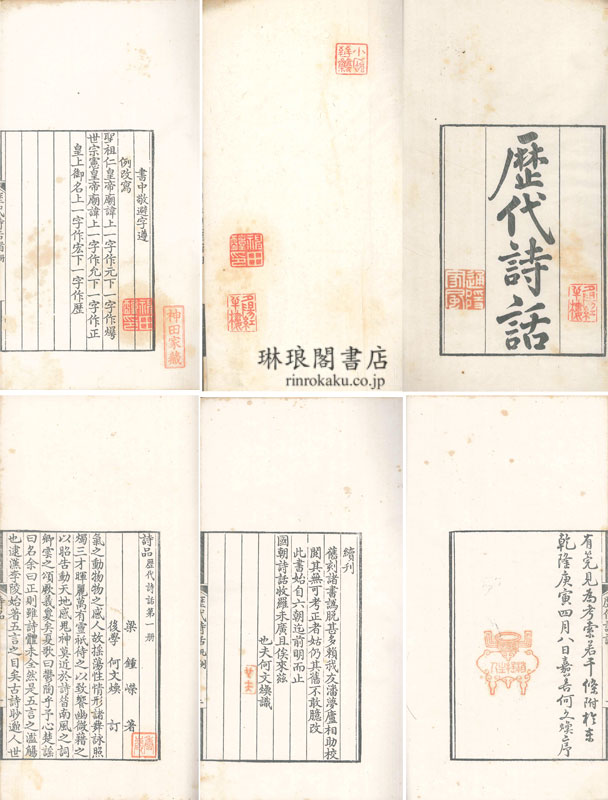 歷代詩話
琳琅閣書店
rinrokaku.co.jp
書中敬避字遵
例改寫
聖祖仁皇帝廟諱上一字作元下一字作爗
世宗憲皇帝廟諱上一字作允下一字作正
皇上御名上一字作宏下一字作歷
神田家藏
有筦見為考索若干條附於末
乾隆庚寅四月八日嘉善何文煥序
續刊
舊刻諸書譌脫甚多賴我友潘夢廬相助校
閱其無可考正者姑仍其舊不敢臆改
此書始自六朝迄前明而止
國朝詩話收羅未廣且俟來茲
也夫何文煥識
詩品 歷代詩話第一册
梁 鍾嶸 著
後學 何文煥 訂
氣之動物物之感人故搖蕩性情形諸舞詠照
燭三才暉麗萬有靈祇待之以致饗幽微藉之
以昭告動天地感鬼神莫近於詩昔南風之詞
卿雲之頌厥義夐矣夏歌曰鬱陶乎予心楚謠
曰名余曰正則雖詩體未全然是五言之濫觴
也逮漢李陵始著五言之目矣古詩眇邈人世